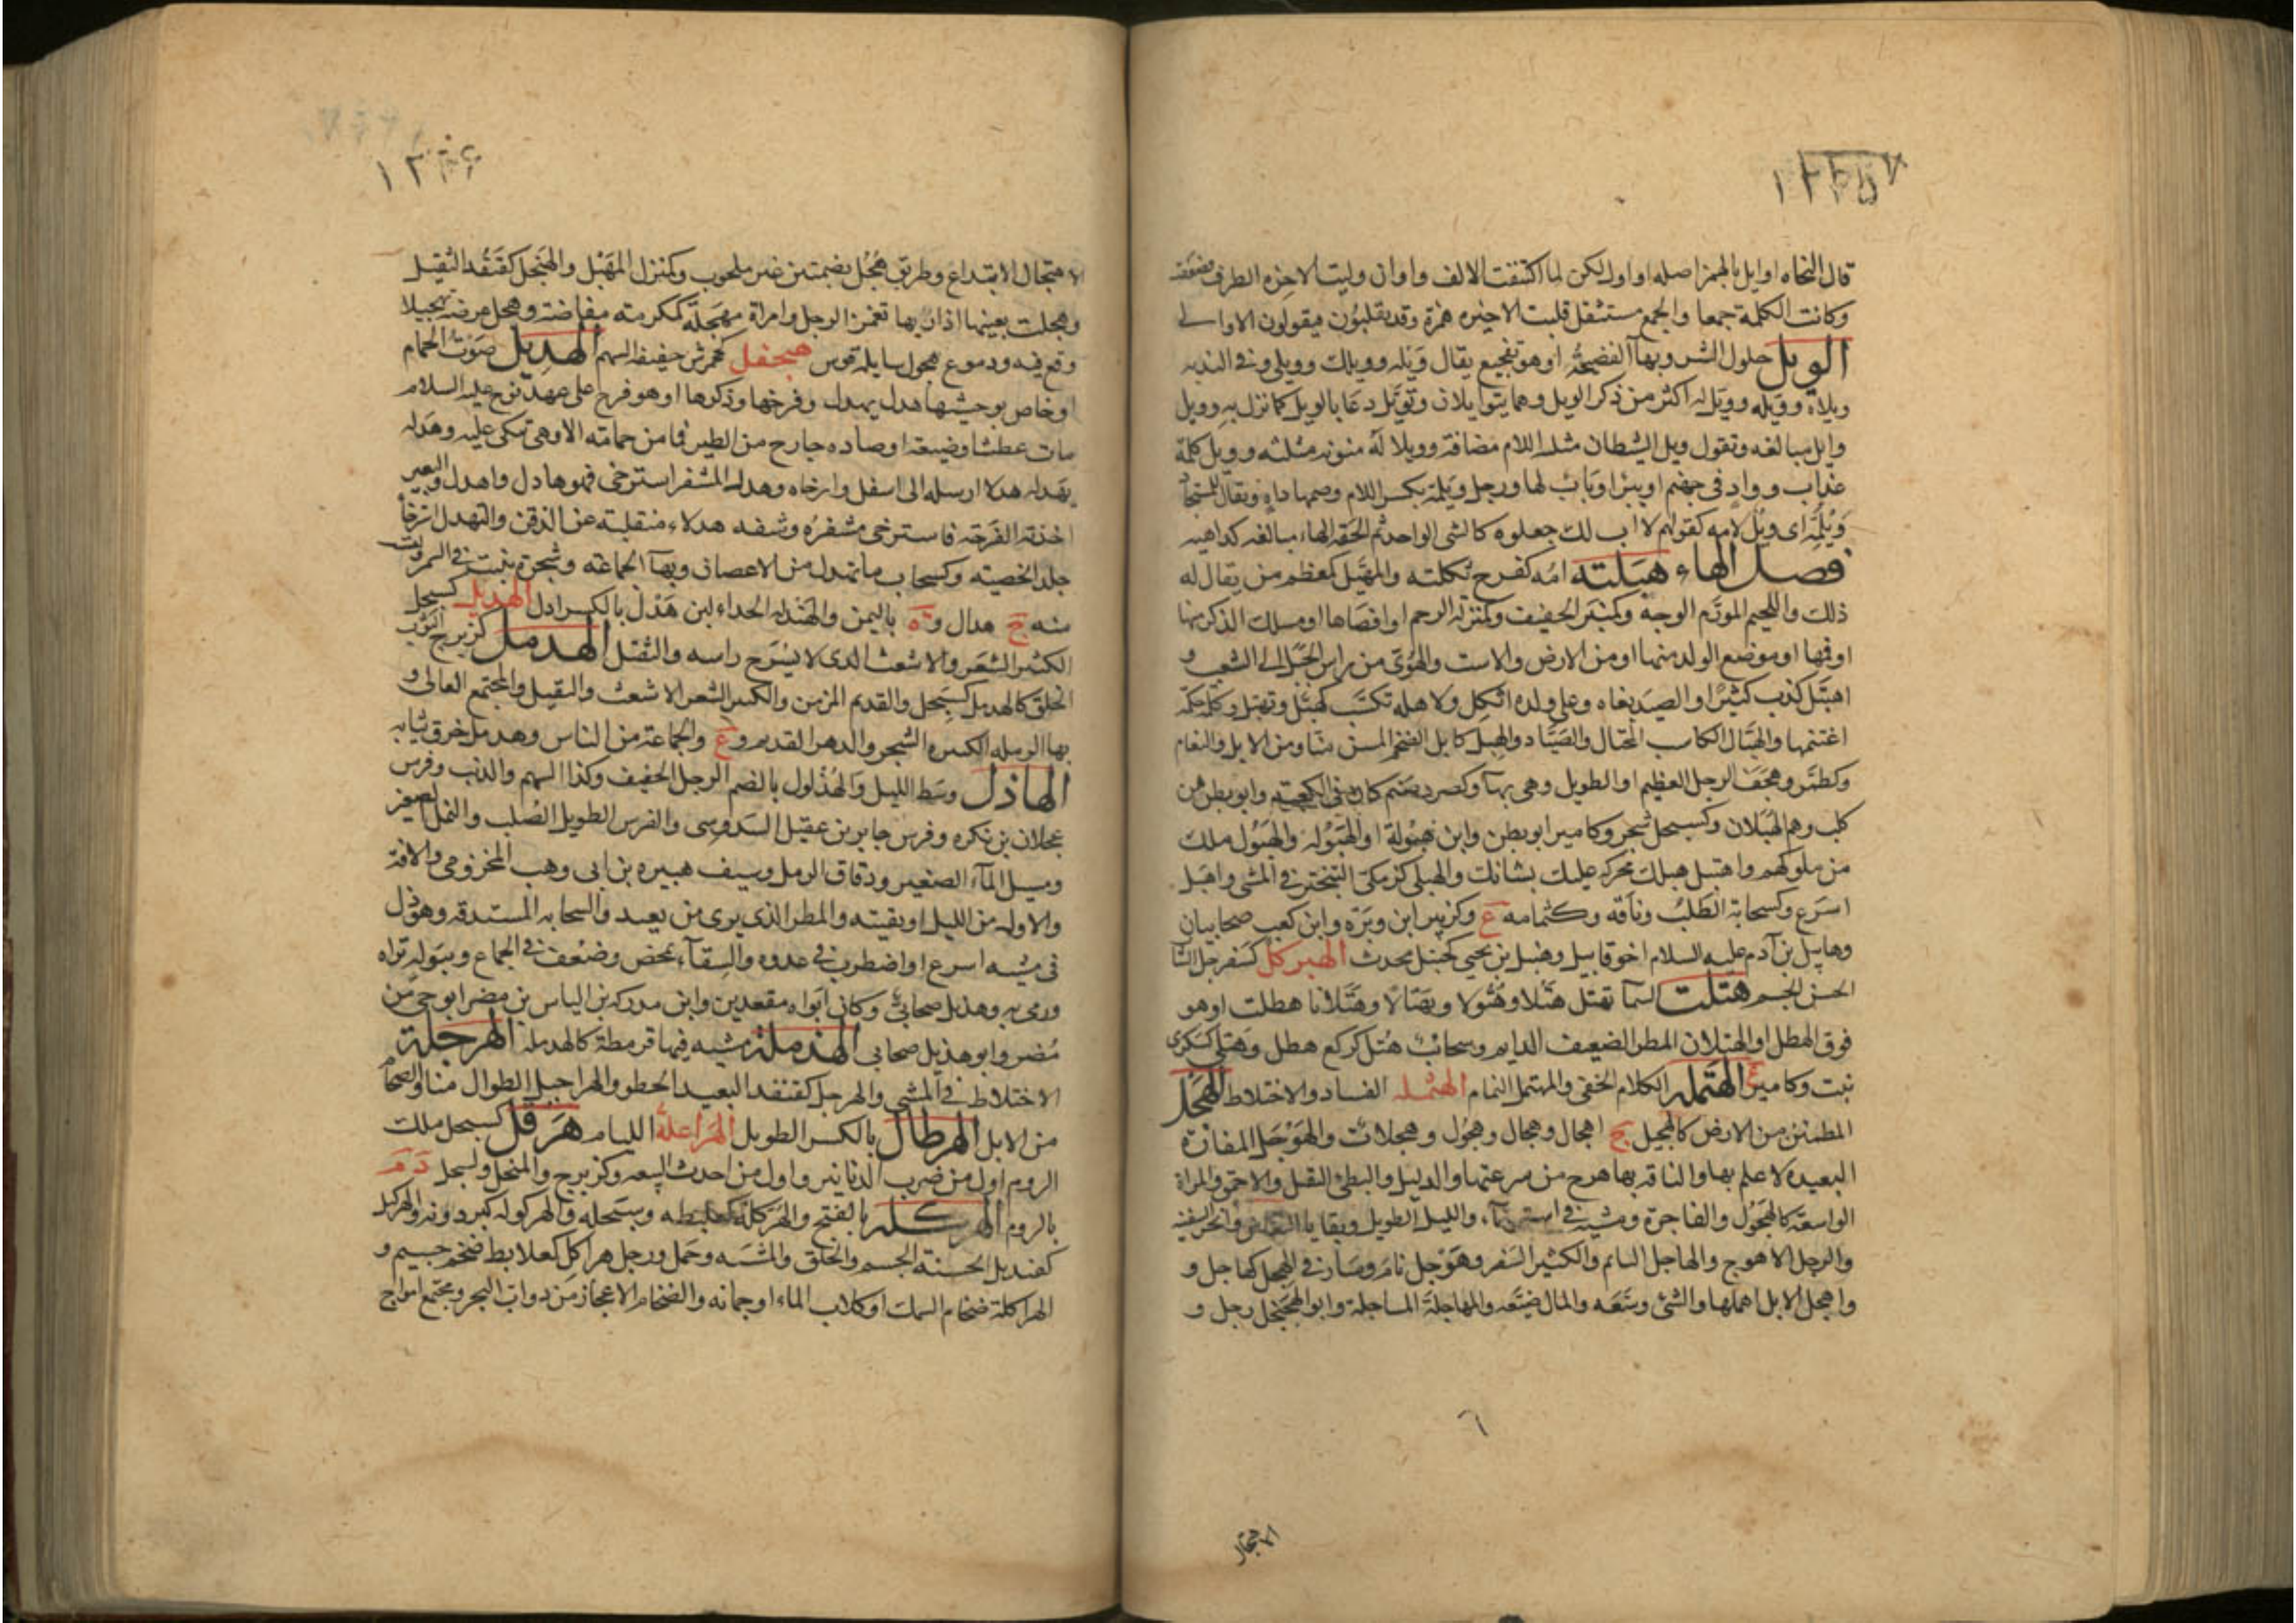 قال النحاه اوايل بالهمز اصله اواول لكن لما اكتنفت الالف واوان وليت الاخره الطرف فضعفت
وكانت الكلمة جمعا والجمع مستثقل قلبت الاخيره همزة وقد يقلبون فيقولون الاوالى
الويل حلول الشر وبهآ الفضيحة او هو تفجيع يقال ويله وويلك وويلى وفى الندبه
ويلاه وويله وويل له اكثر من ذكر الويل وهما يتوايلان وتويل دعا بالويل لما نزل به وويل
وايل مبالغه وتقول ويل الشيطان مثلثه اللام مضافة وويلا له منونه مثلثه وويل كلمة
عذاب وواد فى جهنم او بئر او باب لها ورجل ويلمة بكسر اللام وضمها داه ويقال للمستجاد
ويلمه اى ويل لامه كقولهم لا اب لك جعلوه كالشى الواحد ثم الحقه الهاء مبالغه كداهيه
فصل الهاء هبلته امه كفرح ثكلته والمهبل كمعظم من يقال له
ذلك واللحيم المورم الوجه وكمنبر الخفيف وكمنزلة الرحم او اقصاها او مسلك الذكر منها
او فمها او موضع الولد منها او من الارض والاست والهوى من راس الجبل الى الشعب و
اهتبل كذب كثيرا والصيد بغاه وعلى ولده اثكل ولاهله تكسب كهبل وتهبل وكلمة حكمة
اغتنمها والهبال الكاسب المحتال والصياد والهبل كابل الضخم المسن منا ومن الابل والنعام
وكطمر وهجف الرجل العظيم او الطويل وهى بهآ وكصرد صنم كان فى الكعبة وابو بطن من
كلب وهم الهبلان وكسبحل شجر وكامير ابو بطن وابن هبولة او الهبوله والهبول ملك
من ملوكهم واهتبل هبلك محركة عليك بشانك والهبلى كزمكى التبختر فى المشى واهبل
اسرع وكسحابة الطلب وناقة وكثمامه ع وكزبير ابن وبرة وابن كعب صحابيان
وهابيل بن آدم عليه السلام اخو قابيل وهنبل بن يحيى كحنبل محدث الهبركل كسفرجل الشا
الحسن الجسم هتلت السمآ تهتل هتلا وهتولا وتهتالا وهتلانا هطلت او هو
فوق الهطل او الهتلان المطر الضعيف الدايم وسحائب هتل كركع هطل وهتلى كسكرى
نبت وكامير ع الهتملة الكلام الخفى والمهتمل النمام الهثمله الفساد والاختلاط الهجل
المطمئن من الارض كالهجيل ج اهجال وهجال وهجول وهجلات والهوجل المفازة
البعيده لا علم بها والناقه بها هوج من سرعتها والدليل والبطئ الثقيل والاحمق والمراة
الواسعة كالهجول والفاجرة ومشية فى استرخآء والليل الطويل وبقايا النعاس وانجر السفينه
والرجل الاهوج والهاجل النايم والكثير السفر وهوجل نام وسار فى الهجل كهاجل و
واهجل الابل اهملها والشئ وسعه والمال ضيعه والمهاجلة المساجلة وابو الهجنجل رجل و
الاهتجال
الاهتجال الابتداع وطريق هجل بضمتين غير ملحوب وكمنزل المهبل والهنجل كقنفذ الثقيل
وهجلت بعينها ادارتها تغمز الرجل وامراة مهجلة كمكرمة مفاضة وهجل عرضه تهجيلا
وقع فيه ودموع هجول سايلة قوس هيجفل كجحمرش خفيفة السهم الهديل صوت الحمام
او خاص بوحشيها هدل يهدل وفرخها وذكرها او هو فرخ على عهد نوح عليه السلام
مات عطشا وضيعة او صاده جارح من الطير فما من حمامة الا وهى تبكى عليه وهدله
يهدله هدلا ارسله الى اسفل وارخاه وهدل المشفر استرخى فهو هادل واهدل والبعير
اخذته القرحة فاسترخى مشفره وشفه هدلاء منقلبة عن الذقن والتهدل استرخآ
جلد الخصية وكسحاب ما تهدل من الاغصان وبهآ الجماعة وشجرة تنبت فى السمر
منه ج هدال و ة باليمن والهندله الحداء لبن هدل بالكسر ادل الهدبل كسبحل
الكثير الشعر والاشعث الذى لا يسرح راسه والثقيل الهدمل كزبرج الثوب
الخلق كالهدمل كسبحل والقديم المزمن والكثير الشعر الاشعث والثقيل والمجتمع العالى و
بها الرمله الكثيره الشجر والدهر القديم و ع والجماعة من الناس وهدمل خرق ثيابه
الهاذل وسط الليل والهذلول بالضم الرجل الخفيف وكذا السهم والذئب وفرس
عجلان بن نكره وفرس جابر بن عقيل السدوسى والفرس الطويل الصلب والتل الصغير
ومسيل المآء الصغير ودقاق الرمل وسيف هبيره بن ابى وهب المخزومى والافة
والاوله من الليل او بقيته والمطر الذى يرى من بعيد والسحابه المستدقه وهوذل
فى مشيه اسرع او اضطرب فى عدوه والسقآء تمخض وضعف فى الجماع وببوله نزاه
ورمى به وهذيل صحابى وكان ابواه مقعدين وابن مدركه بن الياس بن مضر ابو حى من
مضر وابو هذيل صحابى الهذملة مشيه فيها قرمطة كالهدملة الهرجلة
الاختلاط فى المشى والهرجل كقنفذ البعيد الخطو والهراجيل الطوال منا والضخام
من الابل الهرطال بالكسر الطويل الهراعلة الليام هرقل كسبحل ملك
الروم اول من ضرب الدنانير واول من احدث البيعه وكزبرج والمنخل وكسبحل د م
بالروم الهركله بالفتح والهركلة كعلبطه وبسبحله والهركوله كبرذونه والهركيل
كقنديل الحسنة الجسم والخلق والمشيه وحمل ورجل هراكل كعلابط ضخم جسيم و
الهراكلة ضخام السمك او كلاب الماء او جمانه والضخام الاعجاز من دواب البحر ومجتمع امواج